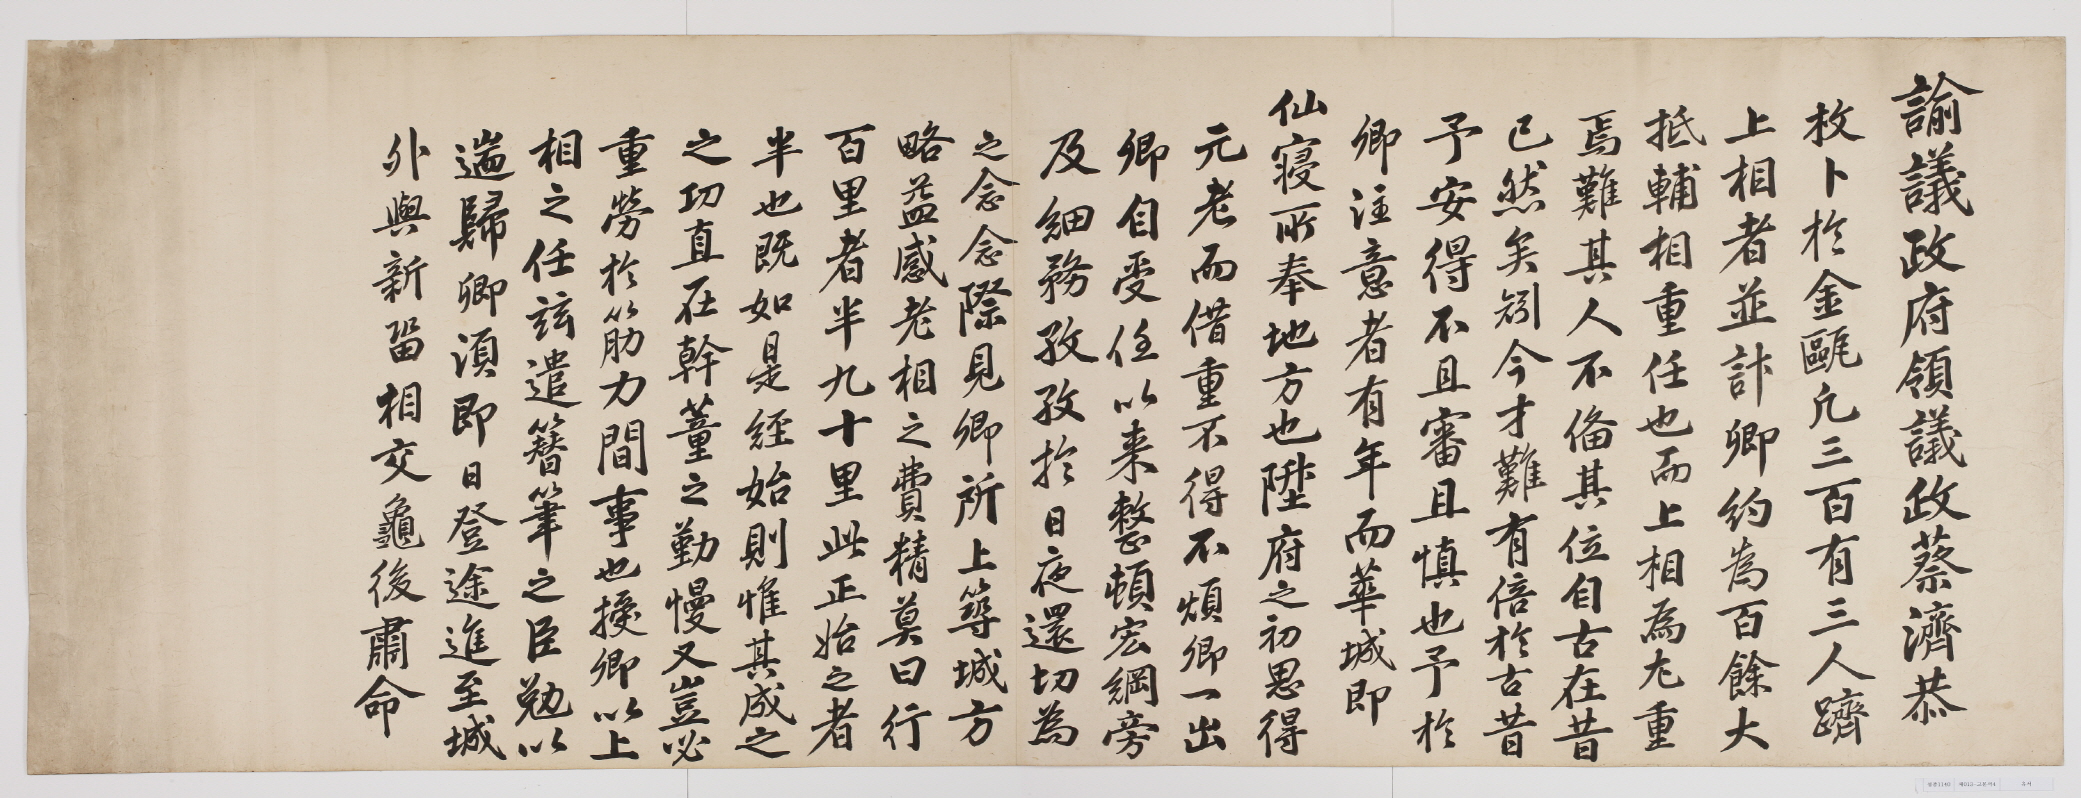 諭議政府領議政蔡濟恭
枚卜於金甌凡三百有三人躋
上相者並計卿約為百餘大
抵輔相重任也而上相為尤重
焉難其人不備其位自古在昔
已然矣矧今才難有倍於古昔
予安得不且審且慎也予於
卿注意者有年而華城即
仙寢所奉地方也陞府之初思得
元老而借重不得不煩卿一出
卿自受任以來整頓宏綱旁
及細務孜孜於日夜還切為
之念念際見卿所上築城方
略益感老相之費精莫曰行
百里者半九十里此正始之者
半也既如是經始則惟其成之
之功直在幹蕫之勤慢又豈必
重勞於筋力間事也擾卿以上
相之任玆遣簪筆之臣勉以
遄歸卿須即日登途進至城
外與新留相交龜後肅命